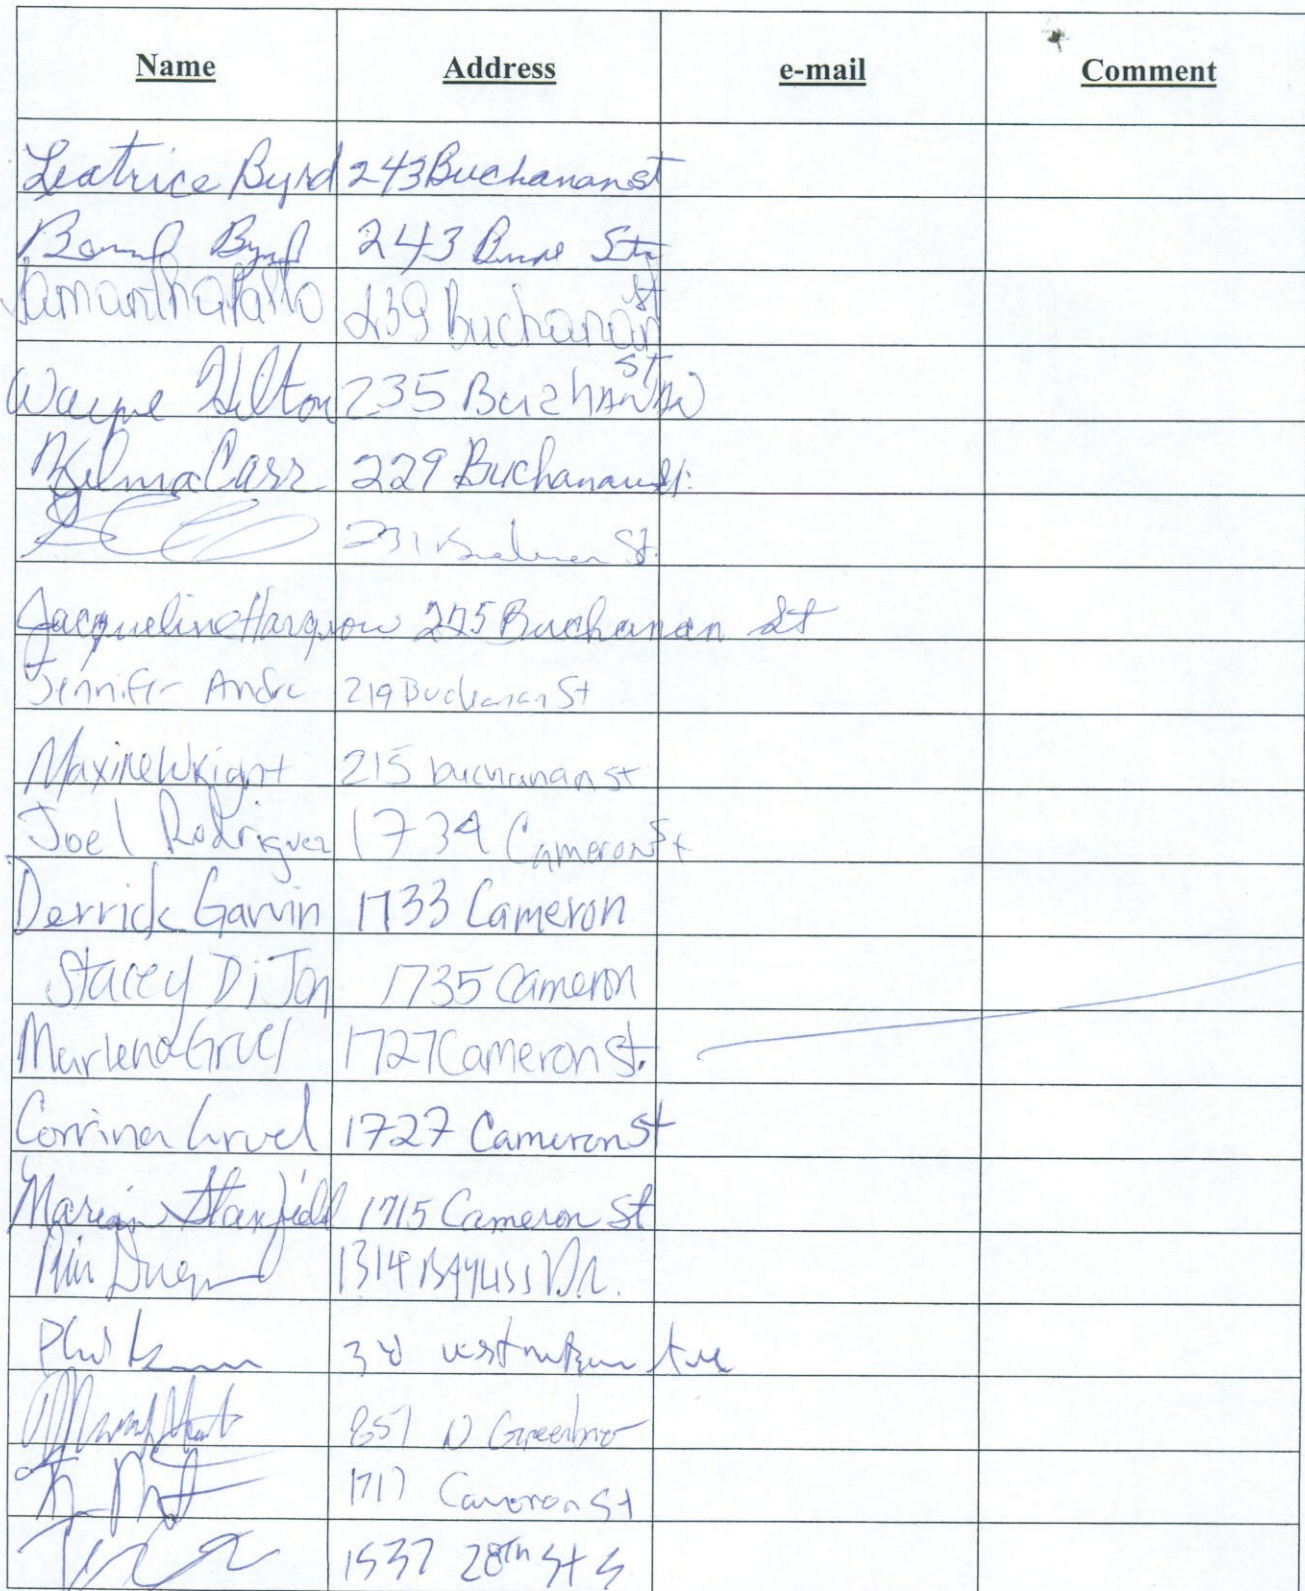 Name Address e-mail Comment
Leatrice Byrd 243 Buchanan st
Byrd 243
Samantha 239 Buchanan st
Wayne Hilton 235 Buchanan st
Carr 229 Buchanan St.
231 St.
Jacqueline Hargrow 225 Buchanan St
Jennifer Andre 219 Buchanan St
Maxine Wright 215 buchanan st
Joel Rodriguez 1734 Cameron St
Derrick Garvin 1733 Cameron
Stacey DiJon 1735 Cameron
Marlena Gruel 1727 Cameron St.
Corrina Gruel 1727 Cameron St
Marian Stanfield 1715 Cameron St
1314 BAYLISS DR.
Phil
857 N Greenbrier
1717 Cameron St
1537 28th St S